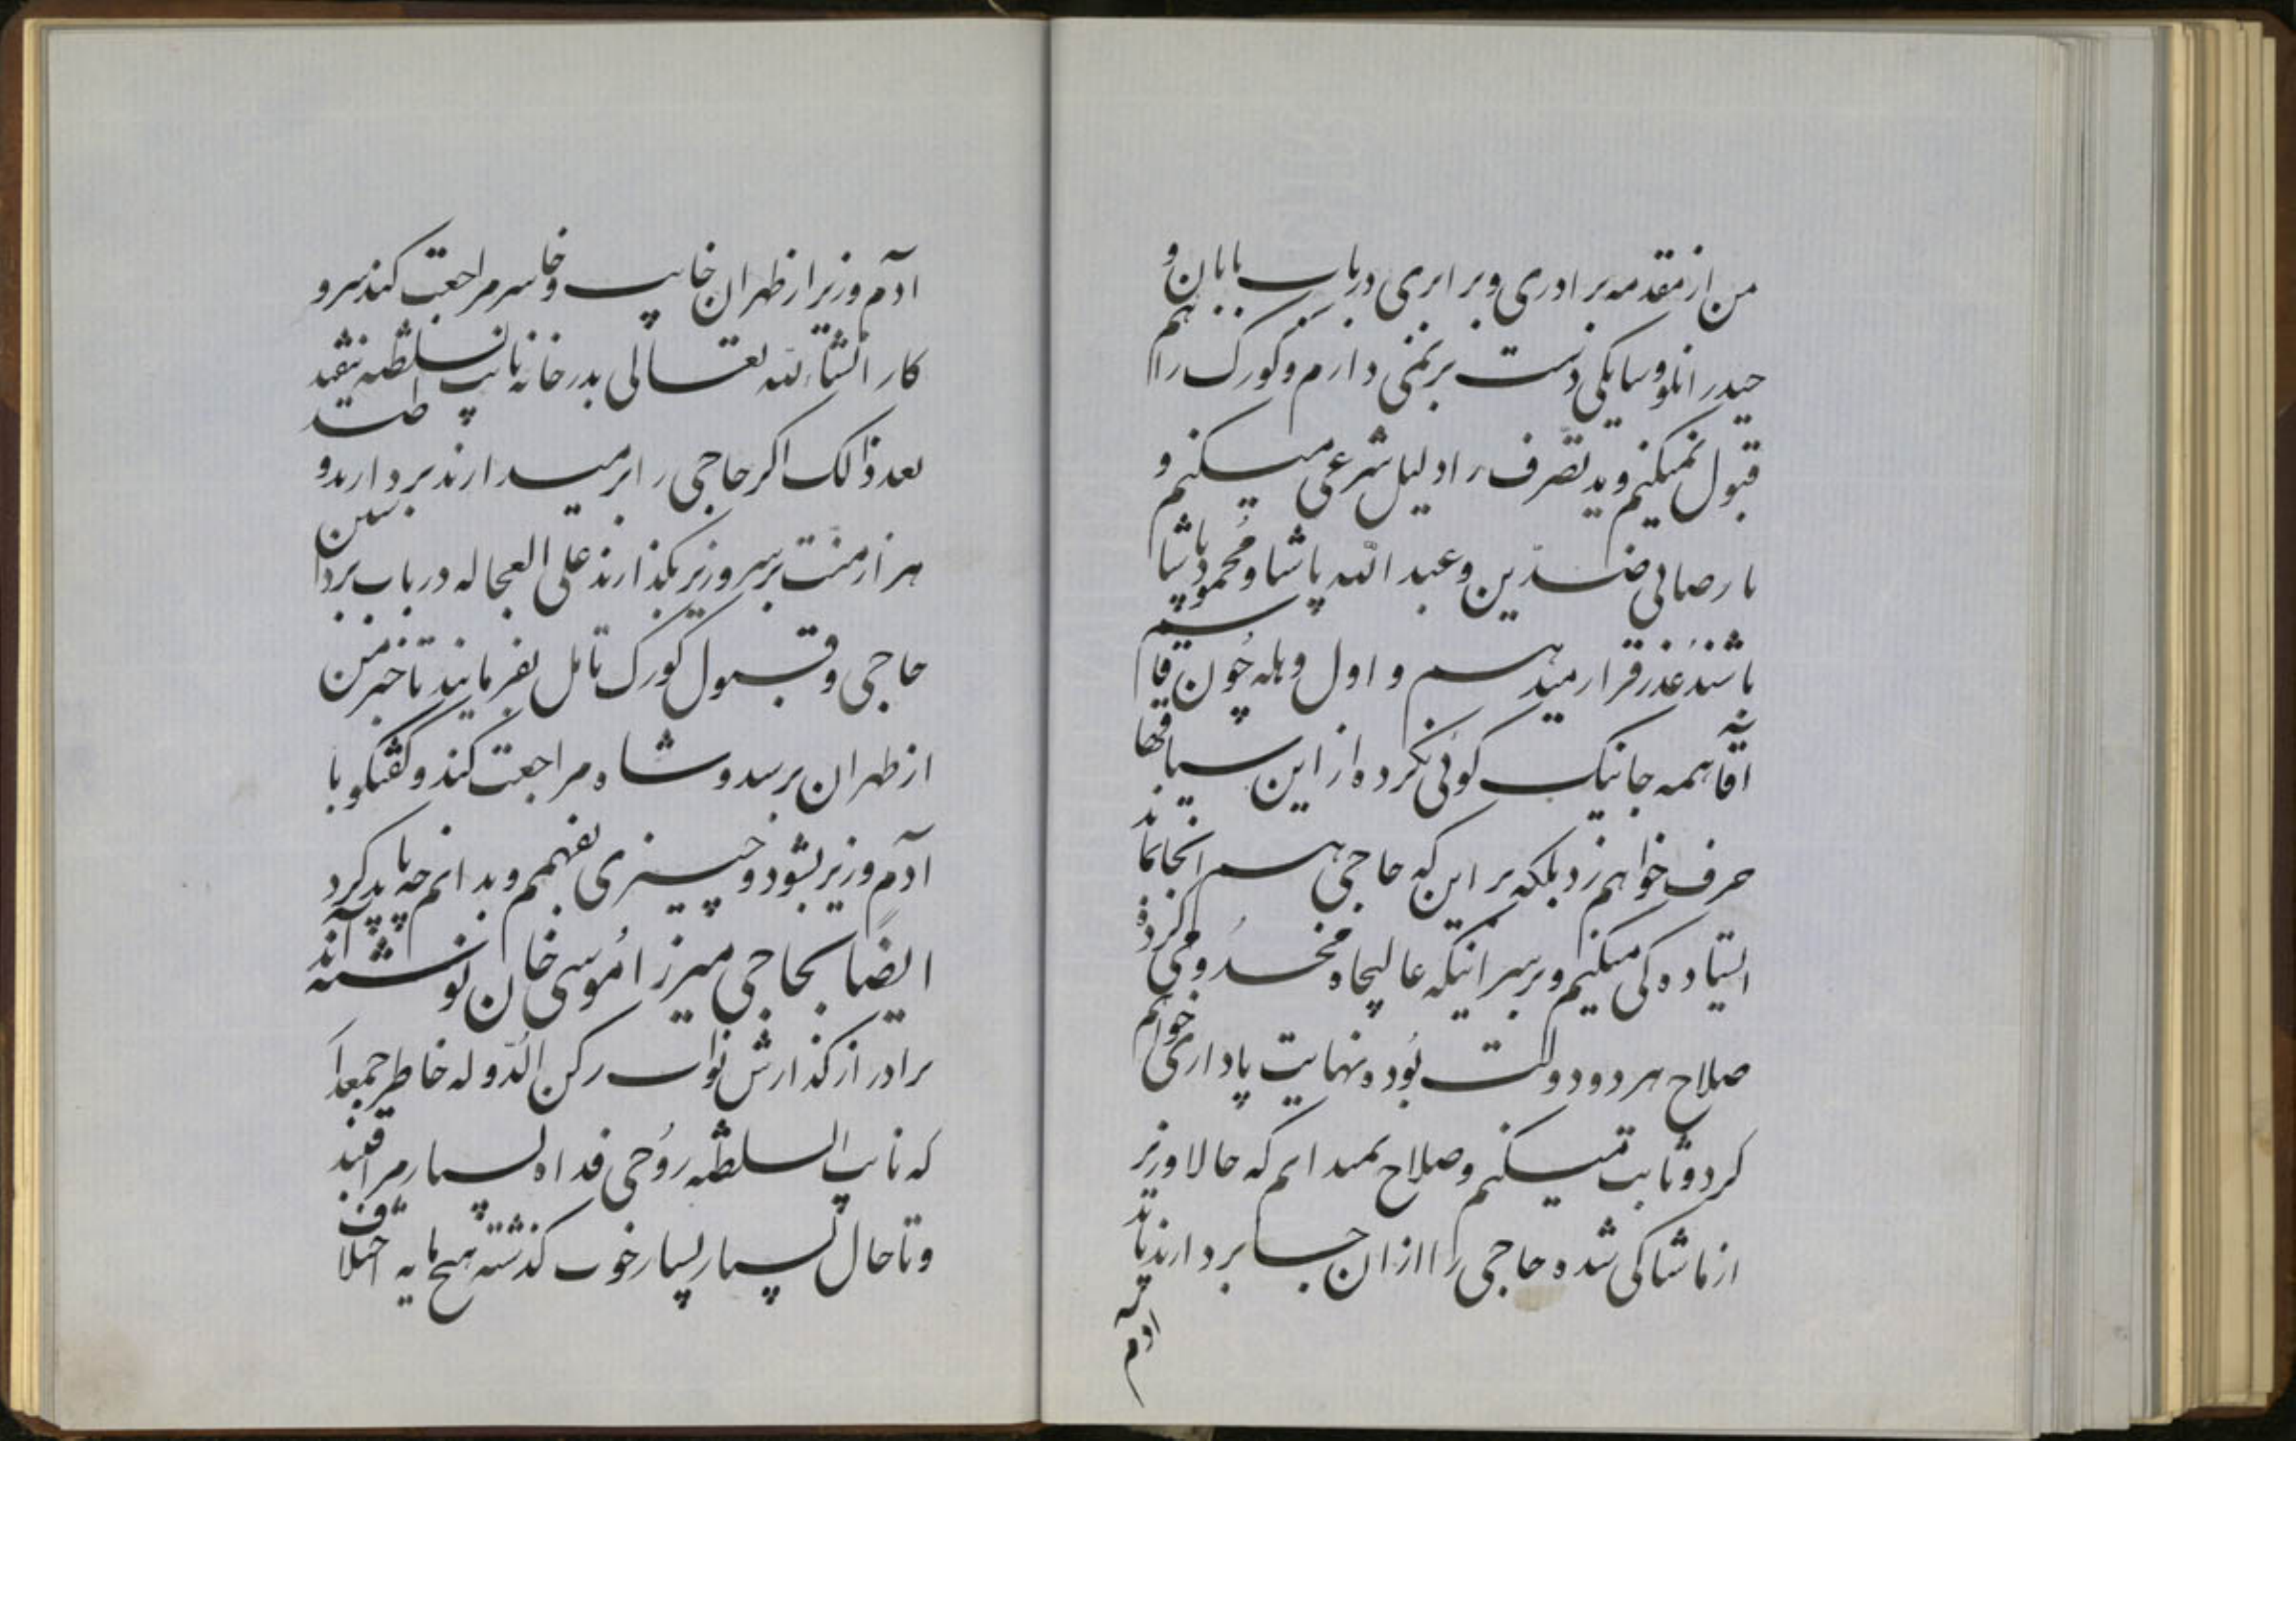 من از مقدمه برادری و برابری در باب بابان و
حیدرانلو و سایکی دست بر نمی دارم و کورک را هم
قبول نمیکنم و ید تصرف را دلیل شرعی میکنم و
تا رضای ضدّین و عبد الله پاشا و محمود پاشا
باشند عذر قرار میدهم و اول وهله چون قایم
آقا همه جا نیک کوئی نکرده از این سیاقها
حرف خواهم زد بلکه بر این که حاجی هم انجا نماند
ایستاده کی میکنم و بر سر اینکه عالیجاه مخدومی کرده
صلاح هر دو دولت بوده نهایت پاداری خواهم
کرد و ثابت میکنم و صلاح نمیدانم که حالا وزیر
از ما شاکی شده حاجی را از ان جا بردارند تا نه
آدم
ادم وزیر از طهران خایب و خاسر مراجعت کند سر و
کار انشاء الله تعالی بدر خانه نایب السلطنه بیفتد
بعد ذالک اکر حاجی را بر میدارند بردارند و
هزار منت بر سر وزیر بکذارند علی العجاله در باب برداشتن
حاجی و قبول کورک تامل بفرمایند تا خبر من
از طهران برسد و شاه مراجعت کند و کفتکو با
ادم وزیر بشود و چیزی بفهمم و بدانم چه باید کرد
ایضا بحاجی میرزا موسی خان نوشته آند
برادر از کذارش نواب رکن الدّوله خاطر جمعدار
که نایب السلطنه روحی فداه بسیار مراقبند
و تا حال بسیار بسیار خوب کذشته هیچ مایه اختلاف